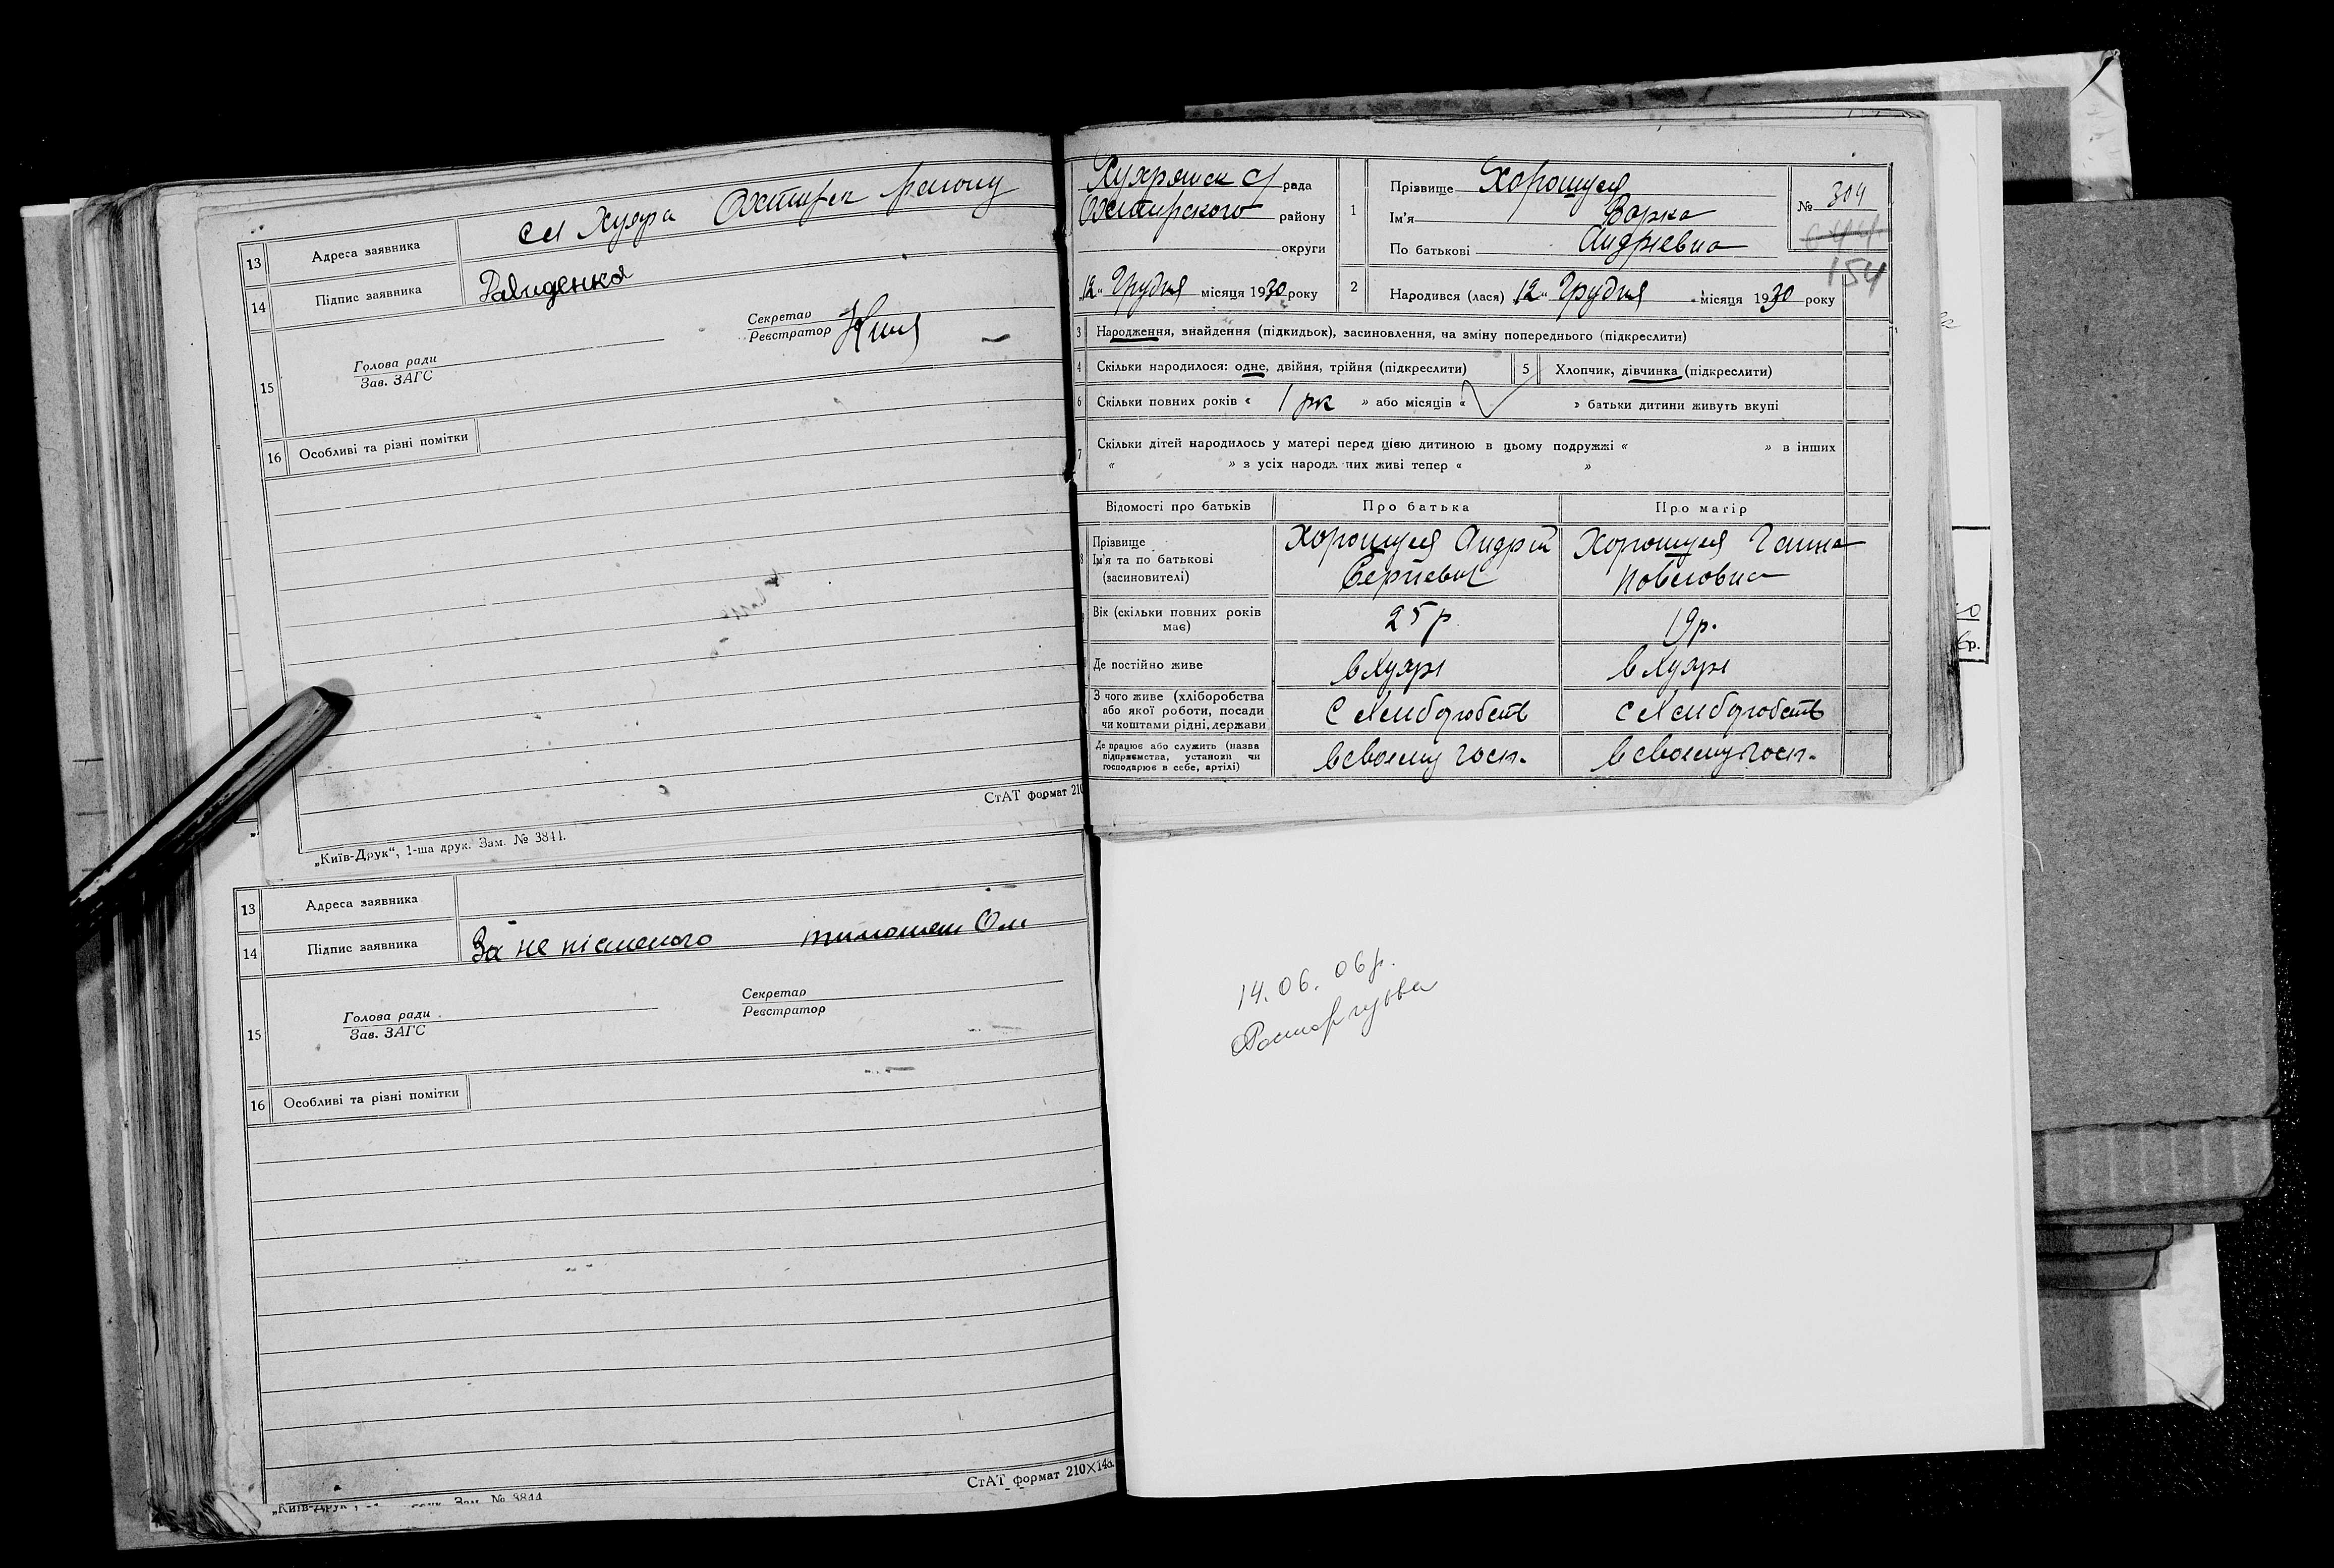 13 Адреса заявника сл Хухра Охтирск району
14 Підпис заявника Давиденко
15 Голова ради
Зав. ЗАГС
Секретар
Реєстратор
16 Особливі та різні помітки
СтАТ формат 210
„Київ-Друк“, 1-ша друк. Зам. № 3844.
13 Адреса заявника
14 Підпис заявника За не письменого
15 Голова ради
Зав. ЗАГС
Секретар
Реєстратор
16 Особливі та різні помітки
СтАТ формат 210×148.
„Київ-Друк“, Зам. № 3844
Хухрянск с/ рада
Охтирского району
округи
„12“ Грудня місяця 1930 року
1 Прізвище
Ім'я Варка
По батькові Андріевна
№ 304
154
2 Народився (лася) „12“ Грудня місяця 1930 року
3 Народження, знайдення (підкидьок), засиновлення, на зміну попереднього (підкреслити)
4 Скільки народилося: одне, двійня, трійня (підкреслити) 5 Хлопчик, дівчинка (підкреслити)
6 Скільки повних років « 1 рік » або місяців « » батьки дитини живуть вкупі
7 Скільки дітей народилось у матері перед цією дитиною в цьому подружжі « » в інших
« » з усіх народж них живі тепер « »
Відомості про батьків Про батька Про матір
8 Прізвище
Ім'я та по батькові
(засновителі)
Андрій
Сергіевич
Ганна
Павловна
Вік (скільки повних років має) 25 р. 19 р.
Де постійно живе в Хухрі в Хухрі
З чого живе (хліборобства
або якої роботи, посади
чи коштами рідні, держави
с хлиборобств с хлиборобств
Де працює або служить (назва
підприємства, установи чи
господарює в себе, артілі)
в своему госп. в своему госп.
14.06.06р.